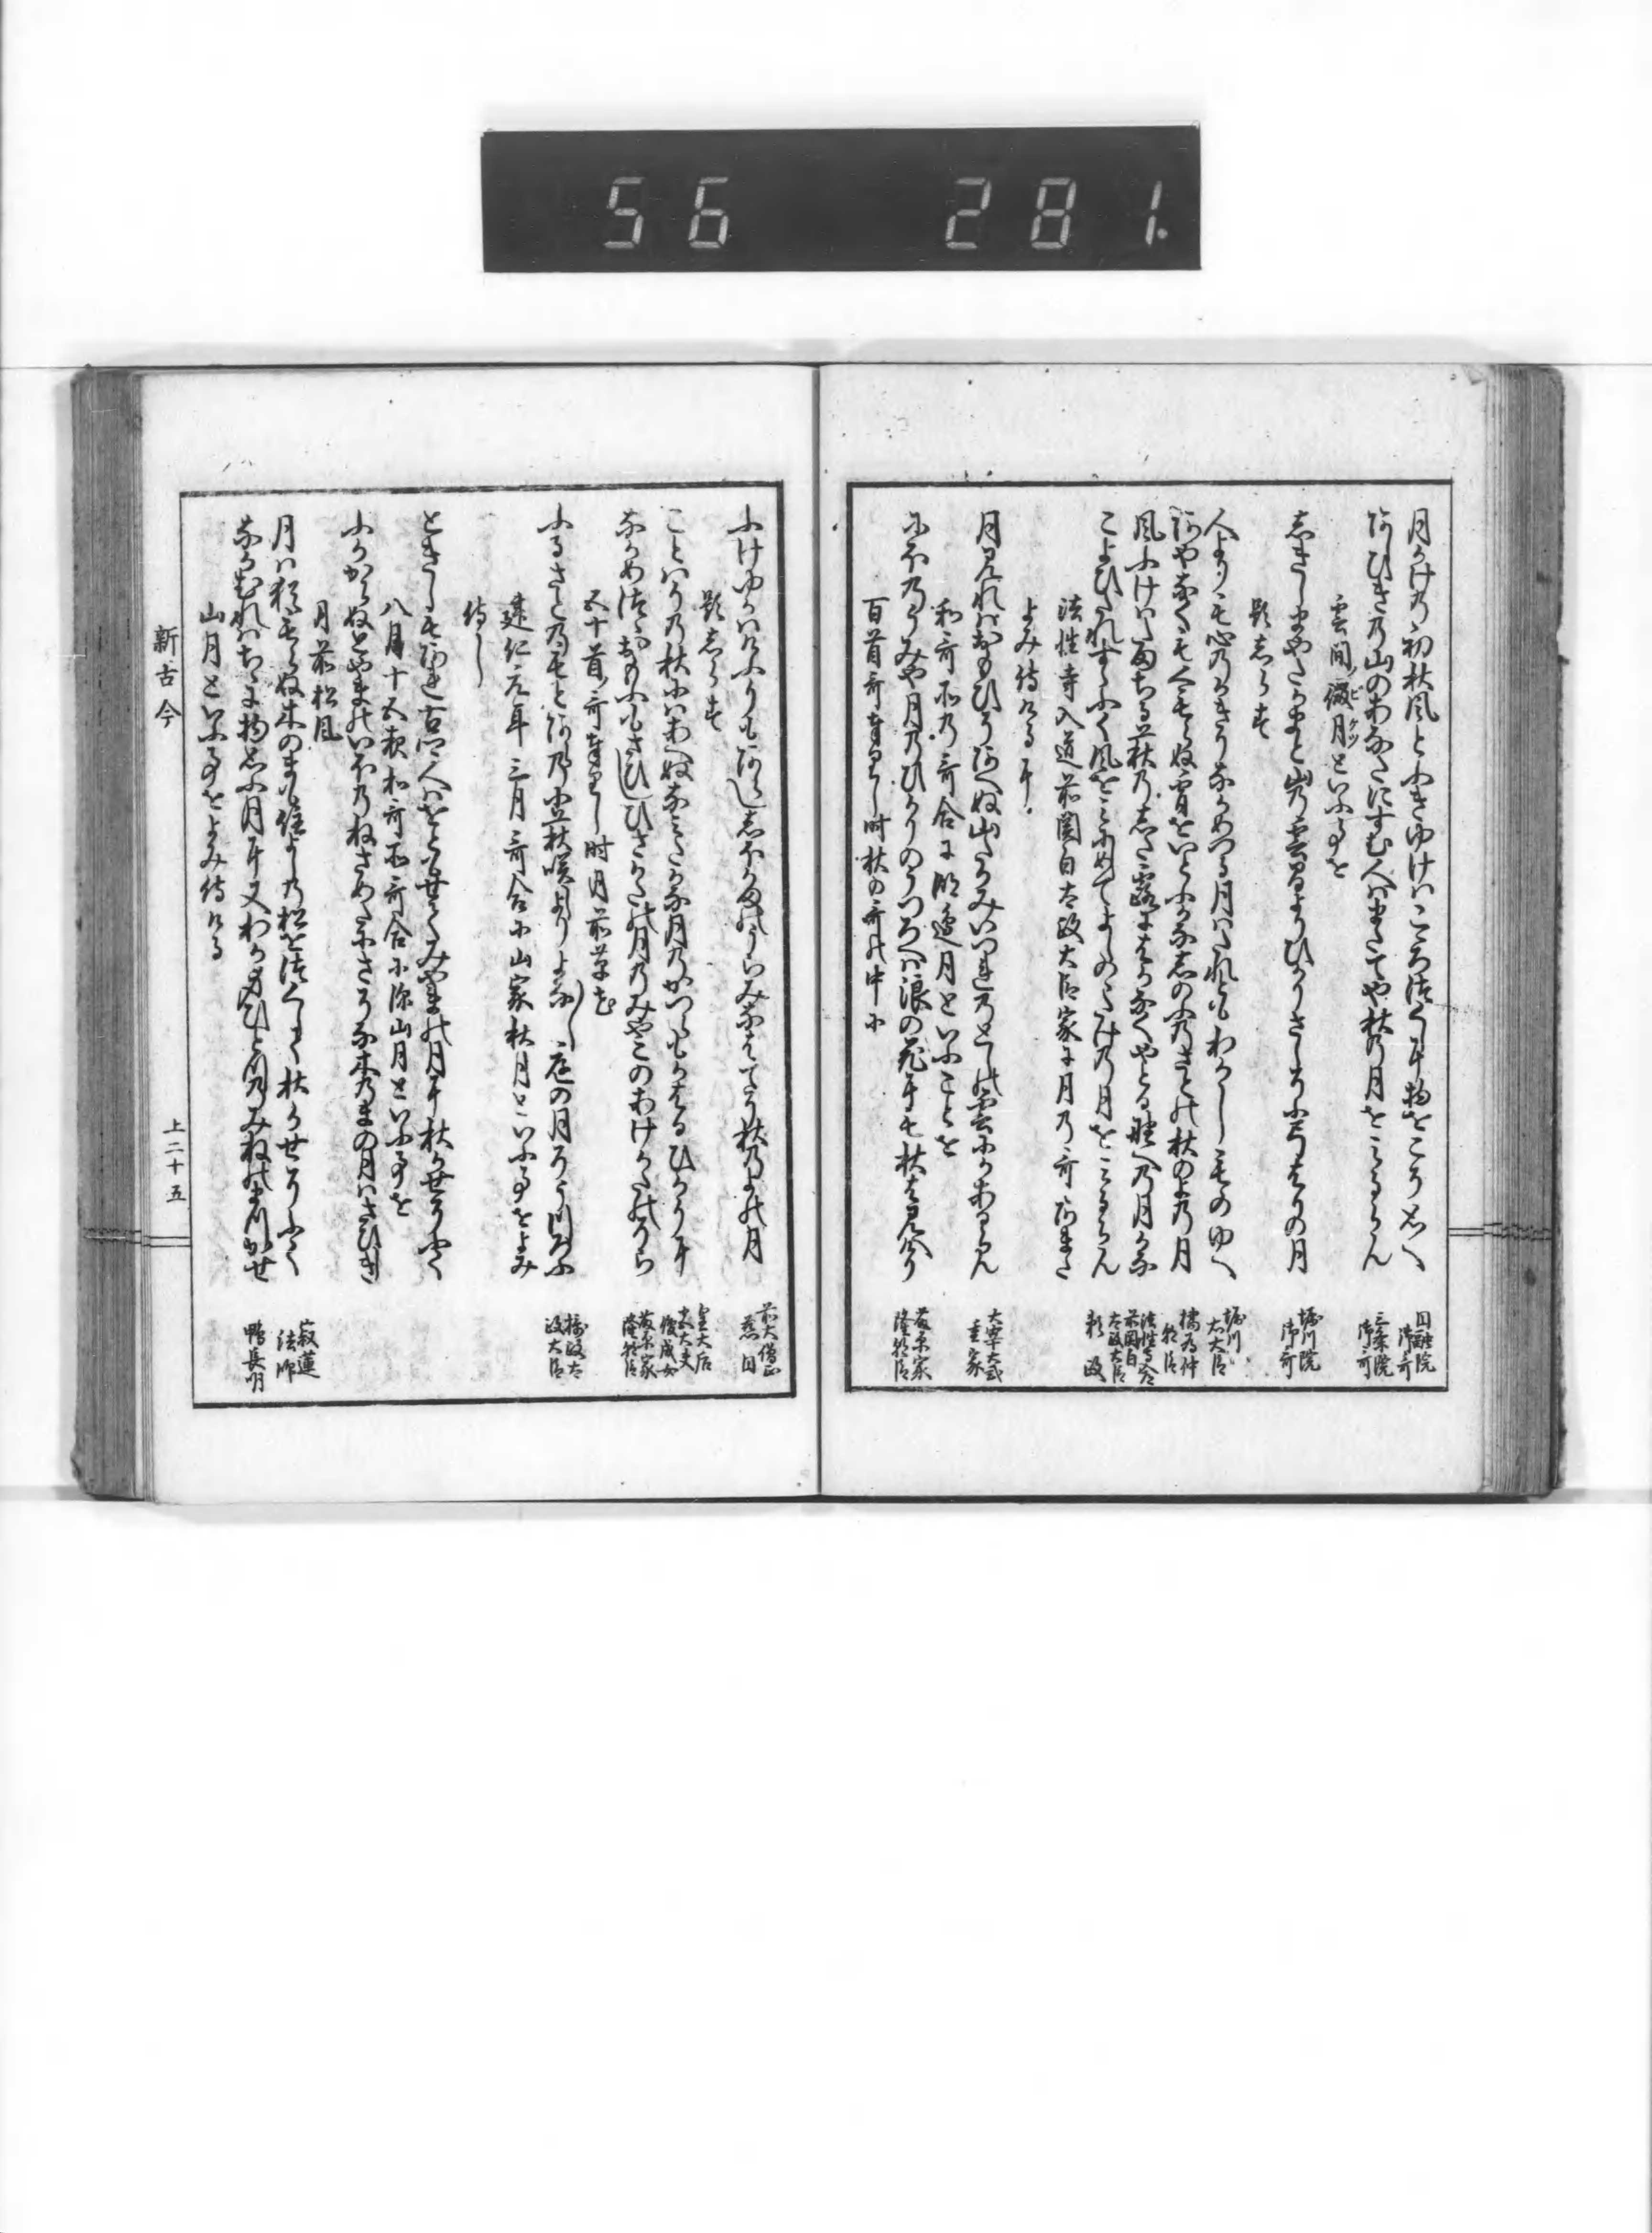 56 281.
月かけの初秋風とふきゆけはこころつくしに物をこそ思へ
円融院御哥
あしひきの山のあなたにすむ人はまたてや秋の月をみるらん
三条院御哥
雲間微月といふ事を
しきしまやたかまと山の雲まよりひかりさしそふゆみはりの月
堀川院御哥
題しらす
人よりも心のかきりなかめつる月はたれともわかしものゆへ
堀川右大臣
あやなくもくもらぬ宵をいとふかなしのふのさとの秋のよの月
橘為仲朝臣
風ふけはたまちる萩のした露にはかなくやとる野への月かな
法性寺入道前関白太政大臣
こよひたれすゝふく風をみにしめてよしのゝたけの月をみるらん
頼政
法性寺入道前関白太政大臣家に月の哥あまた
よみ侍けるに
月みれはおもひそあへぬ山たかみいつれのとしの雲にかあるらん
大宰大弐重家
和哥所の哥合に湖辺月といふことを
にほのうみや月のひかりのうつろへは浪の花にも秋はみえけり
藤原家隆朝臣
百首哥奉りし時秋の哥の中に
ふけゆかはけふりもあらししほかまのうらみなはてそ秋のよの月
前大僧正慈円
題しらす
ことはりの秋にはあへぬなみたかな月のかつらもかはるひかりに
皇太后宮大夫俊成女
なかめつゝおもふもさひしひさかたの月のみやこのあけかたのそら
藤原家隆朝臣
五十首哥奉りし時月前草花
ふるさとのもとあらの小萩咲しよりよなよな庭の月そうつろふ
摂政太政大臣
建仁元年三月哥合に山家秋月といふ事をよみ
侍し
ときしもあれふるさと人はをともせてみやまの月に秋かせそふく
八月十五夜和哥所哥合に深山月といふ事を
ふかからぬと山のいほのねさめたにさそな木のまの月はさひしき
月前松風
月は猶もらぬ木のまも住よしの松をつくして秋かせそふく
寂蓮法師
なかむれはちゝに物思ふ月に又わか身ひとつのみねの松かせ
鴨長明
山月といふ事をよみ侍ける
新古今
上二十五